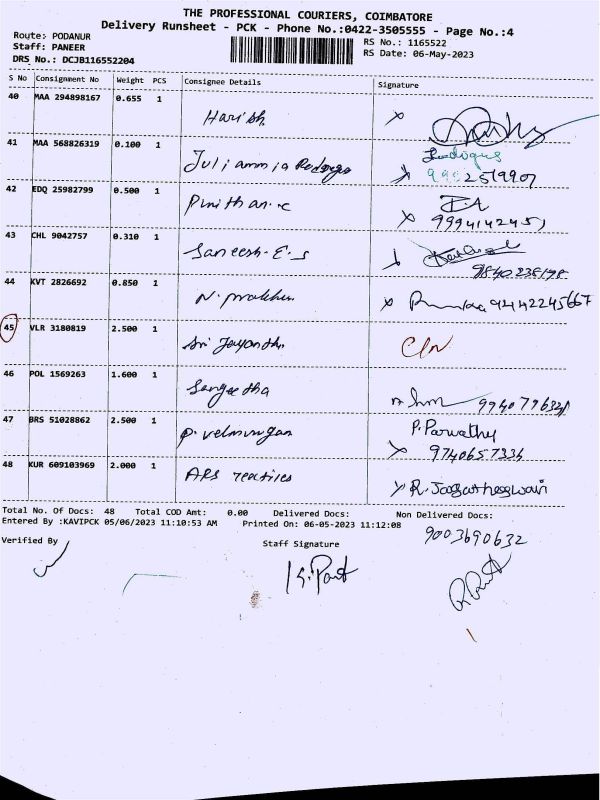 THE PROFESSIONAL COURIERS, COIMBATORE
Delivery Runsheet - PCK - Phone No.:0422-3505555 - Page No.:4
Route: PODANUR
Staff: PANEER
DRS No.: DCJB116552204
RS No.: 1165522
RS Date: 06-May-2023
S No Consignment No Weight PCS Consignee Details Signature
40 MAA 294898167 0.655 1 Harish x
41 MAA 568826319 0.100 1 Juliammia Rodrigo x 9992519907
42 EDQ 25982799 0.500 1 Punithan.c x 9994142451
43 CHL 9042757 0.310 1 Saneesh.E.s 9840238198
44 KVT 2826692 0.850 1 N. prabhu x 9442245667
45 VLR 3180819 2.500 1 Sri Jayanthi C/N
46 POL 1569263 1.600 1 Sangeetha
47 BRS 51028862 2.500 1 P. velmurugan P. Parvathy x 9740657334
48 KUR 609103969 2.000 1 ARS x R. Jagatheeswari
Total No. Of Docs: 48 Total COD Amt: 0.00 Delivered Docs: Non Delivered Docs:
Entered By :KAVIPCK 05/06/2023 11:10:53 AM Printed On: 06-05-2023 11:12:08
9003690632
Verified By
Staff Signature